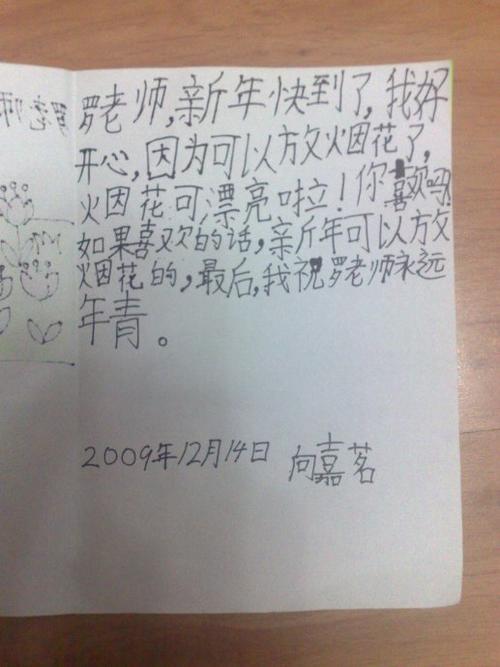 罗老师
罗老师,新年快到了,我好
开心,因为可以放烟花了,
烟花可漂亮啦!你喜欢吗?
如果喜欢的话,亲斤年可以放
烟花的,最后,我祝罗老师永远
年青。
2009年12月14日 向嘉茗